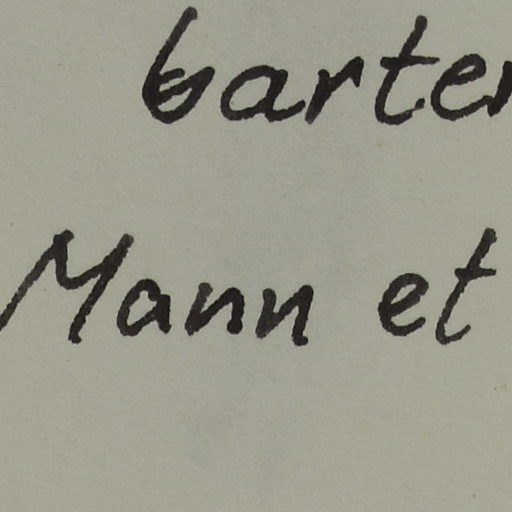 Garter
Mann et